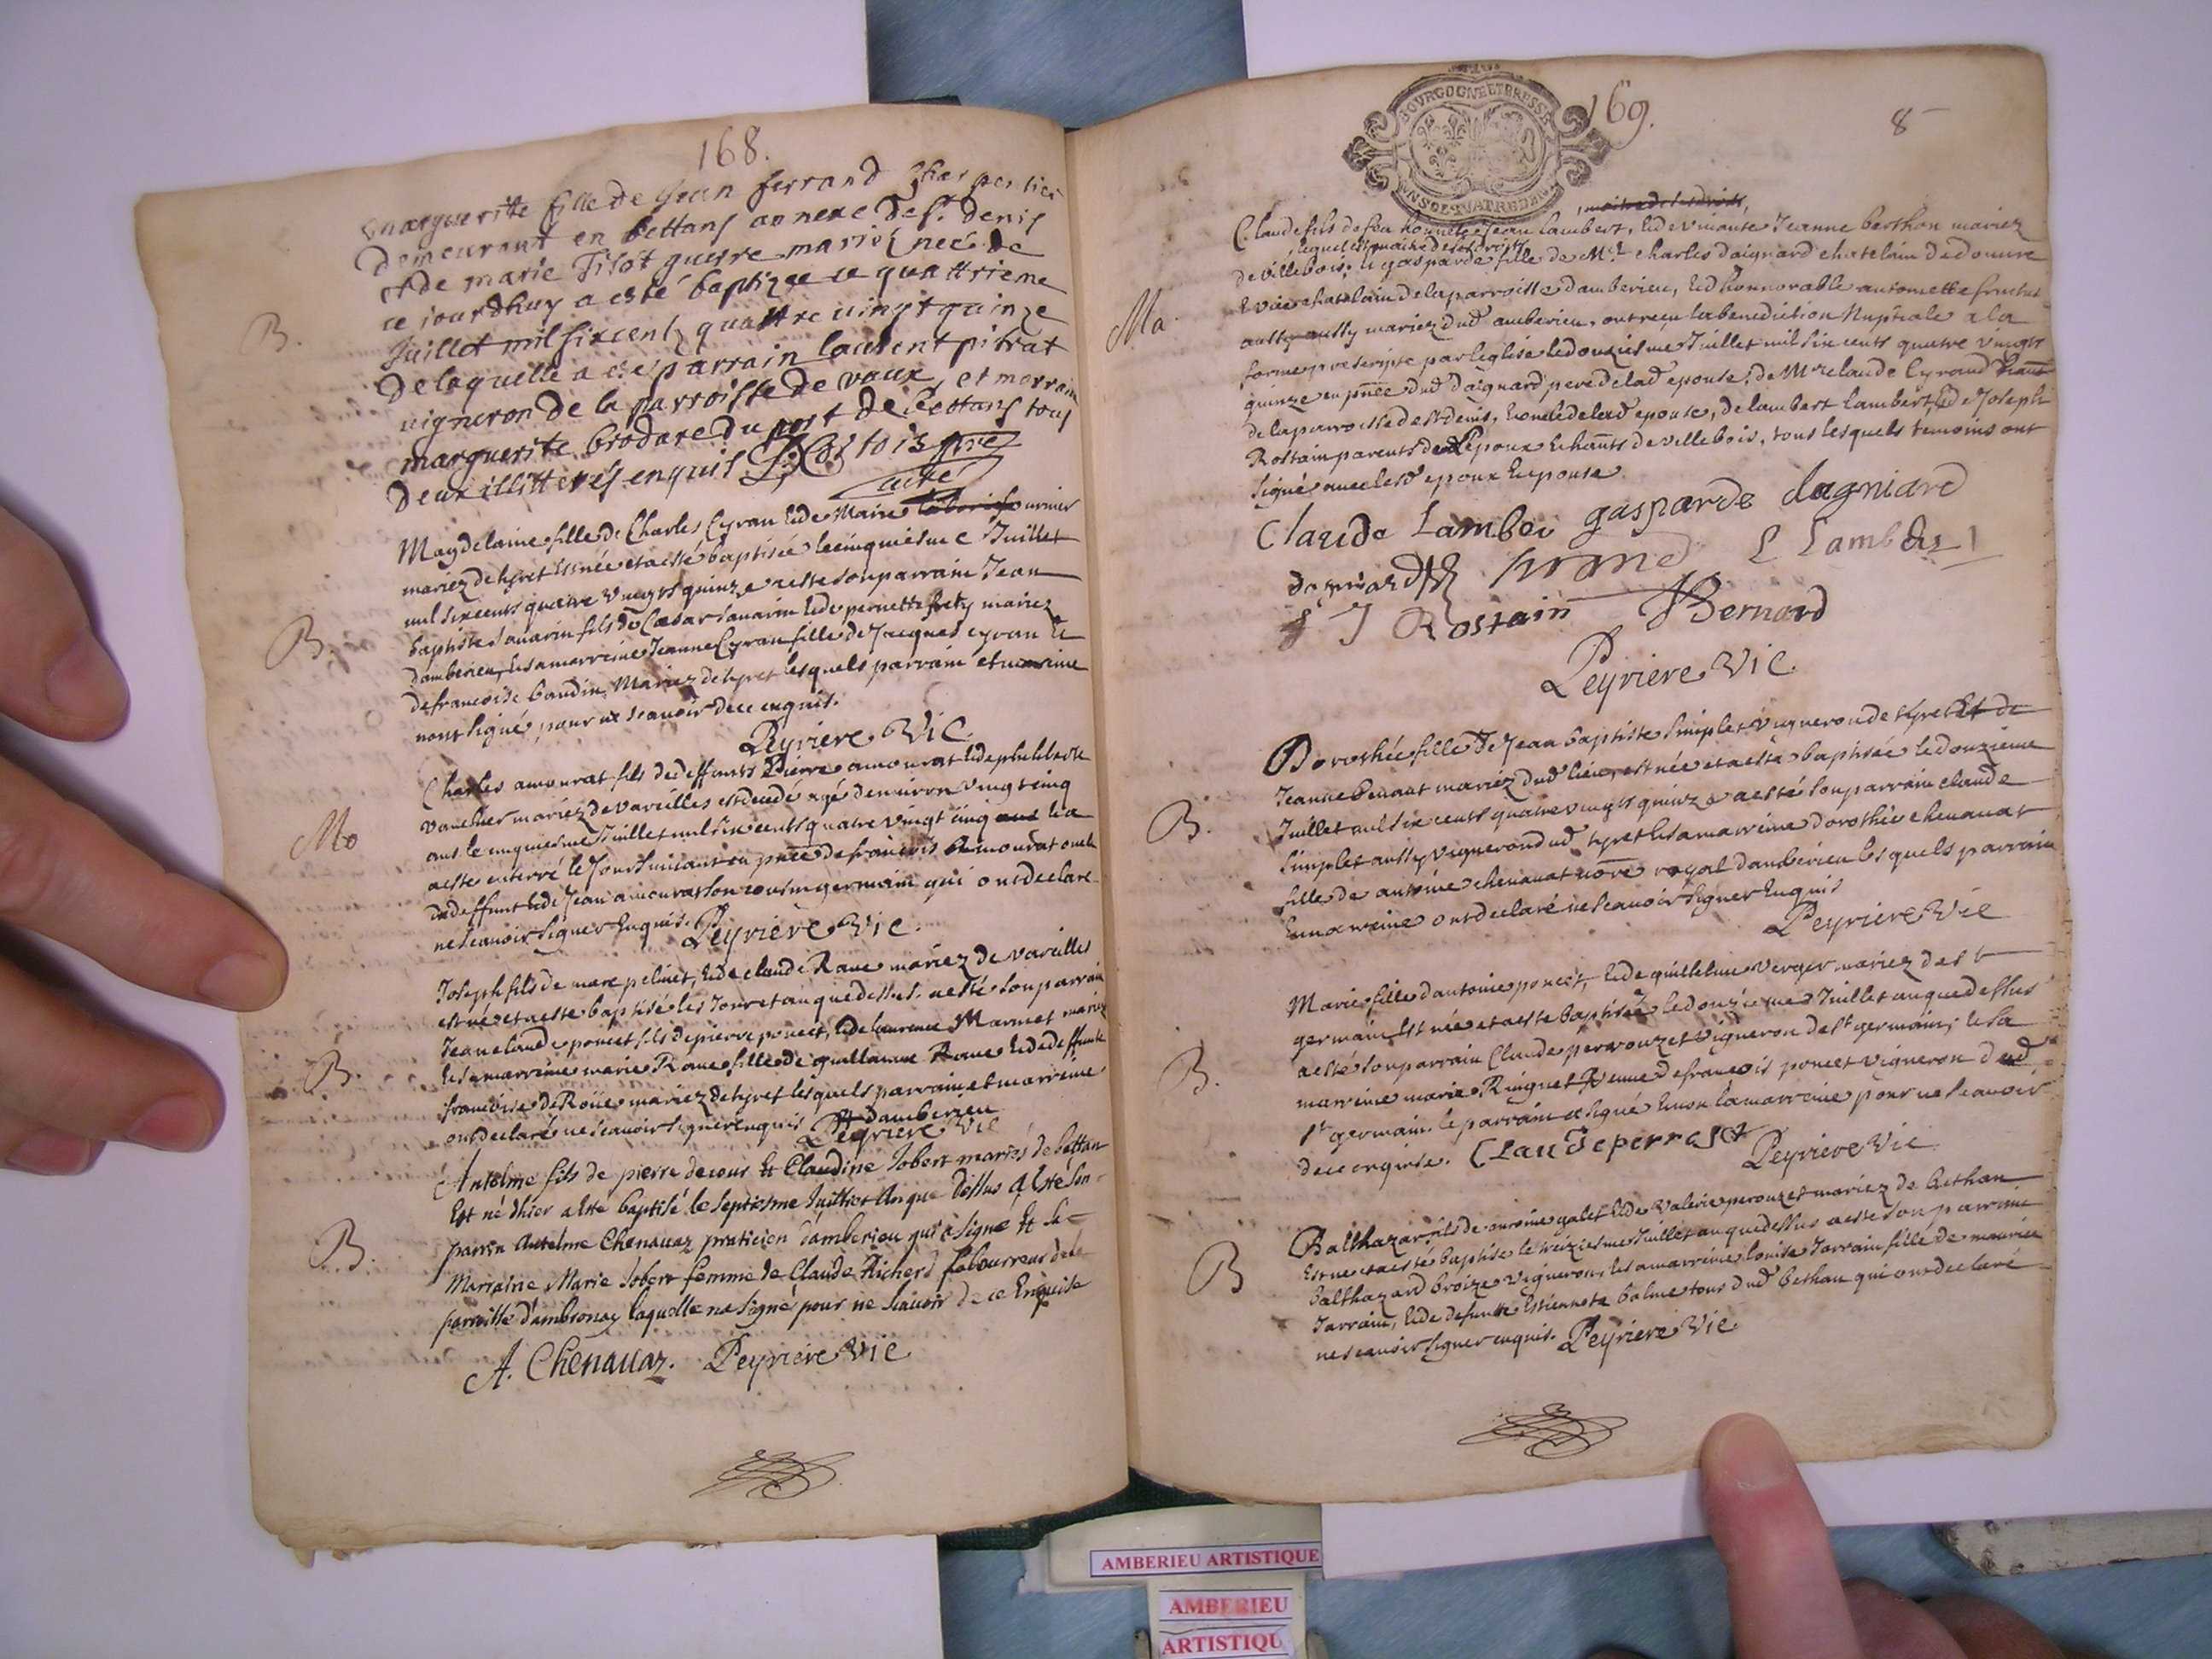 168.
margueritte fille de Jean ferrand
demeurant en bettans annexe de st. denis
et de marie mariés neé de
ce jourdhuy a esté baptizee ce quattrieme
B.
Juillet mil six cent quattre vingt quinze
de laquelle a esté parrain laurent pitrat
vigneron de la parroisse de vaux, et marraine
marguerite brodare du port de bettans tous
deux illitterés enquis
Magdelaine fille de Charles Cyran & de Marie fournier
mariez de tyret est née et a esté baptisée le cinquiesme Juillet
mil six cents quatre vingts quinze a esté son parrain Jean
B.
baptiste Savarin fils de Cæsar Savarin & de pernette mariez
damberieu, & sa marreine Jeanne Cyran fille de Jacques cyran &
de francoise baudin Mariez de tyret lesquels parrain et marreine
n'ont signé pour ne scavoir de ce enquis.
Peyriere Vic.
Charles amourat fils de deffunts Pierre amourat & de philiberte
Mo
vauchier mariez de vareilles est decedé agé denviron vingt cinq
ans le cinquiesme Juillet mil six cents quatre vingt cinq & a
esté enterré le Jour suivant en pnce de francois Amourat oncle
du deffunt & de Jean amourat son cousin germain qui ont declaré
ne scavoir signer Enquis. Peyriere Vic.
Joseph fils de marc pelinet, & de claude Rave mariez de vareilles
est né et a esté baptisé les Jour et an que dessus a esté son parrain
Jean claude poncet fils de pierre poncet, & de laurence Marinet mariez
B.
& sa marreine marie Rave fille de guillaume Rave & de deffunte
francoise de Roüe mariez de tyret lesquels parrain et marreine
ont declaré ne scavoir signer enquis
damberieu
Peyriere Vic
Antelme fils de pierre decour & Claudine Jobert mariés de bettan
Est né dhier a este baptisé le septiesme Juillet an que dessus a este son
B.
parrin Antelme Chenavaz praticien damberieu qui a signé & sa
Marraine Marie Jobert femme de Claude Richerd labourreur de la
parroisse d'ambronay laquelle na signé pour ne scavoir de ce Enquise
A. Chenavaz. Peyriere Vic
169.
8
BOURGOGNE ET BRESSE
Claude fils de feu Jean Lambert, & de vivante Jeanne berthon mariez
de villebois, & gasparde fille de Mre charles daignard chatelain de douvre
Ma.
& vice chatelain de la parroisse damberieu, & d'honnorable antoinette
aussy mariez dud amberieu, ont reçu la benediction Nuptiale a la
forme prescripte par l'eglise le douziesme Juillet mil six cents quatre vingts
quinze en pnce dud daignard pere de lad epouse, de Mre claude Cyrand
de la parroisse de st denis, oncle de lad epouse, de lambert lambert, & de Joseph
Rostain parents de l'epoux & hants de villebois, tous lesquels temoins ont
signé avec lesd epoux & epouse.
Claude Lambert gasparde dagniard
L Lambert
J Rostain JBernard
Peyriere Vic.
Dorothée fille de Jean baptiste Simplet vigneron de tyret Et de
Jeanne benaut mariez dud lieu, est née et a esté baptisée le douzieme
Juillet mil six cents quatre vingts quinze a esté son parrain claude
B.
Simplet aussy vigneron dud tyret & sa marreine dorothée chenavat
fille de antoine chenavat nore royal damberieu lesquels parrain
& marreine ont declaré ne scavoir signer Enquis
Peyriere Vic
Marie fille d'antoine poncet, & de guillelme verger mariez de st
germain Est née et a este baptisée le douzieme Juillet an que dessus
a esté son parrain Claude perrouzet vigneron de st germain, & sa
B.
marreine marie Ringuet femme de francois poncet vigneron dud
st germain le parrain a signé & non la marreine pour ne scavoir
de ce enquise. Claude perroset
Peyriere Vic
Balthazar fils de antoine galet & de Valerie perouzet mariez de bethan
Est ne et a esté baptisé le treiziesme Juillet an que dessus a este son parrain
B
Balthazard broize vigneron, & sa marreine louise Jarrain fille de maurice
Jarrain, & de defuncte Estiennete balme tous dud bethan qui ont declaré
ne scavoir signer enquis. Peyriere Vic
AMBERIEU ARTISTIQUE
AMBERIEU
ARTISTIQU